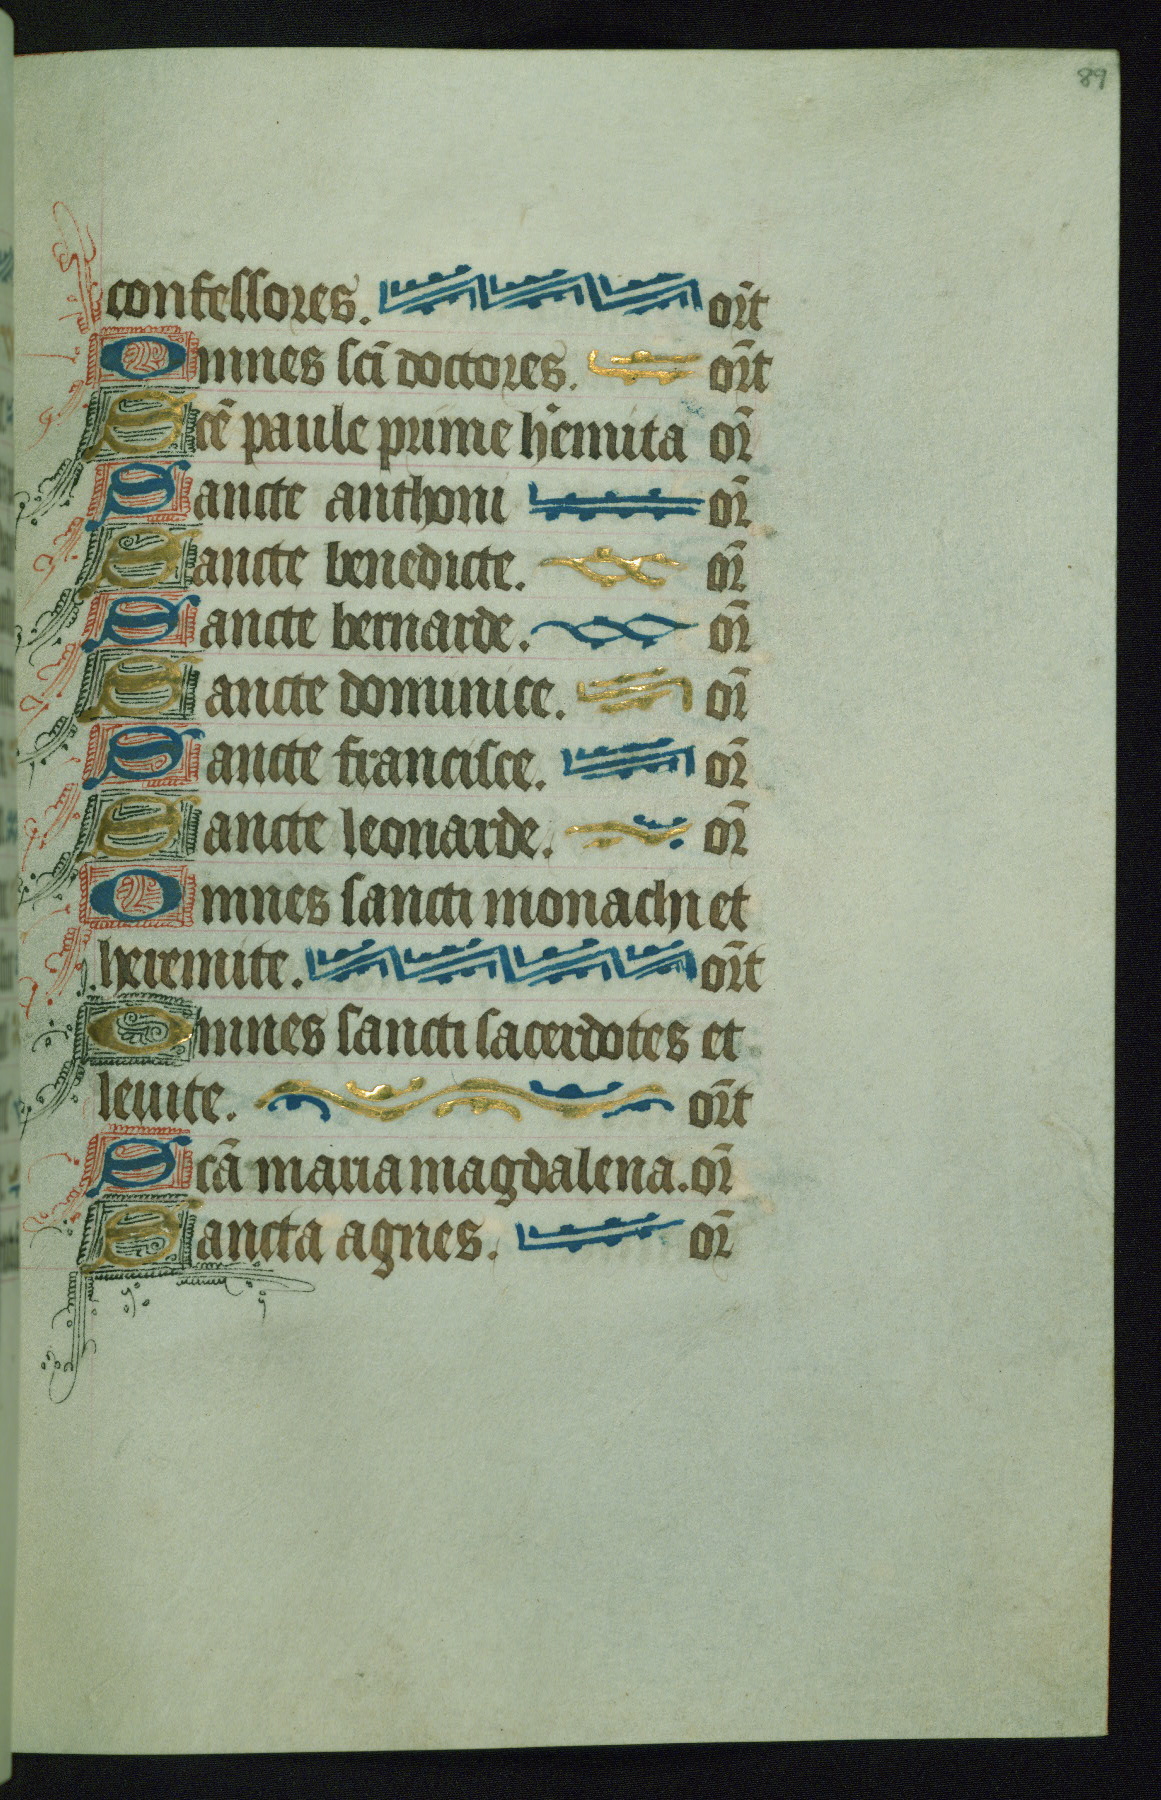 89
confessores. or̄t
Omnes sc̄i doctores. or̄t
Sc̄e paule prime h̄emita or̄
Sancte anthoni or̄
Sancte benedicte. or̄
Sancte bernarde. or̄
Sancte dominice. or̄
Sancte francisce. or̄
Sancte leonarde. or̄
Omnes sancti monachi et
heremite. or̄t
Omnes sancti sacerdotes et
leuite. or̄t
Sc̄a maria magdalena. or̄
Sancta agnes. or̄